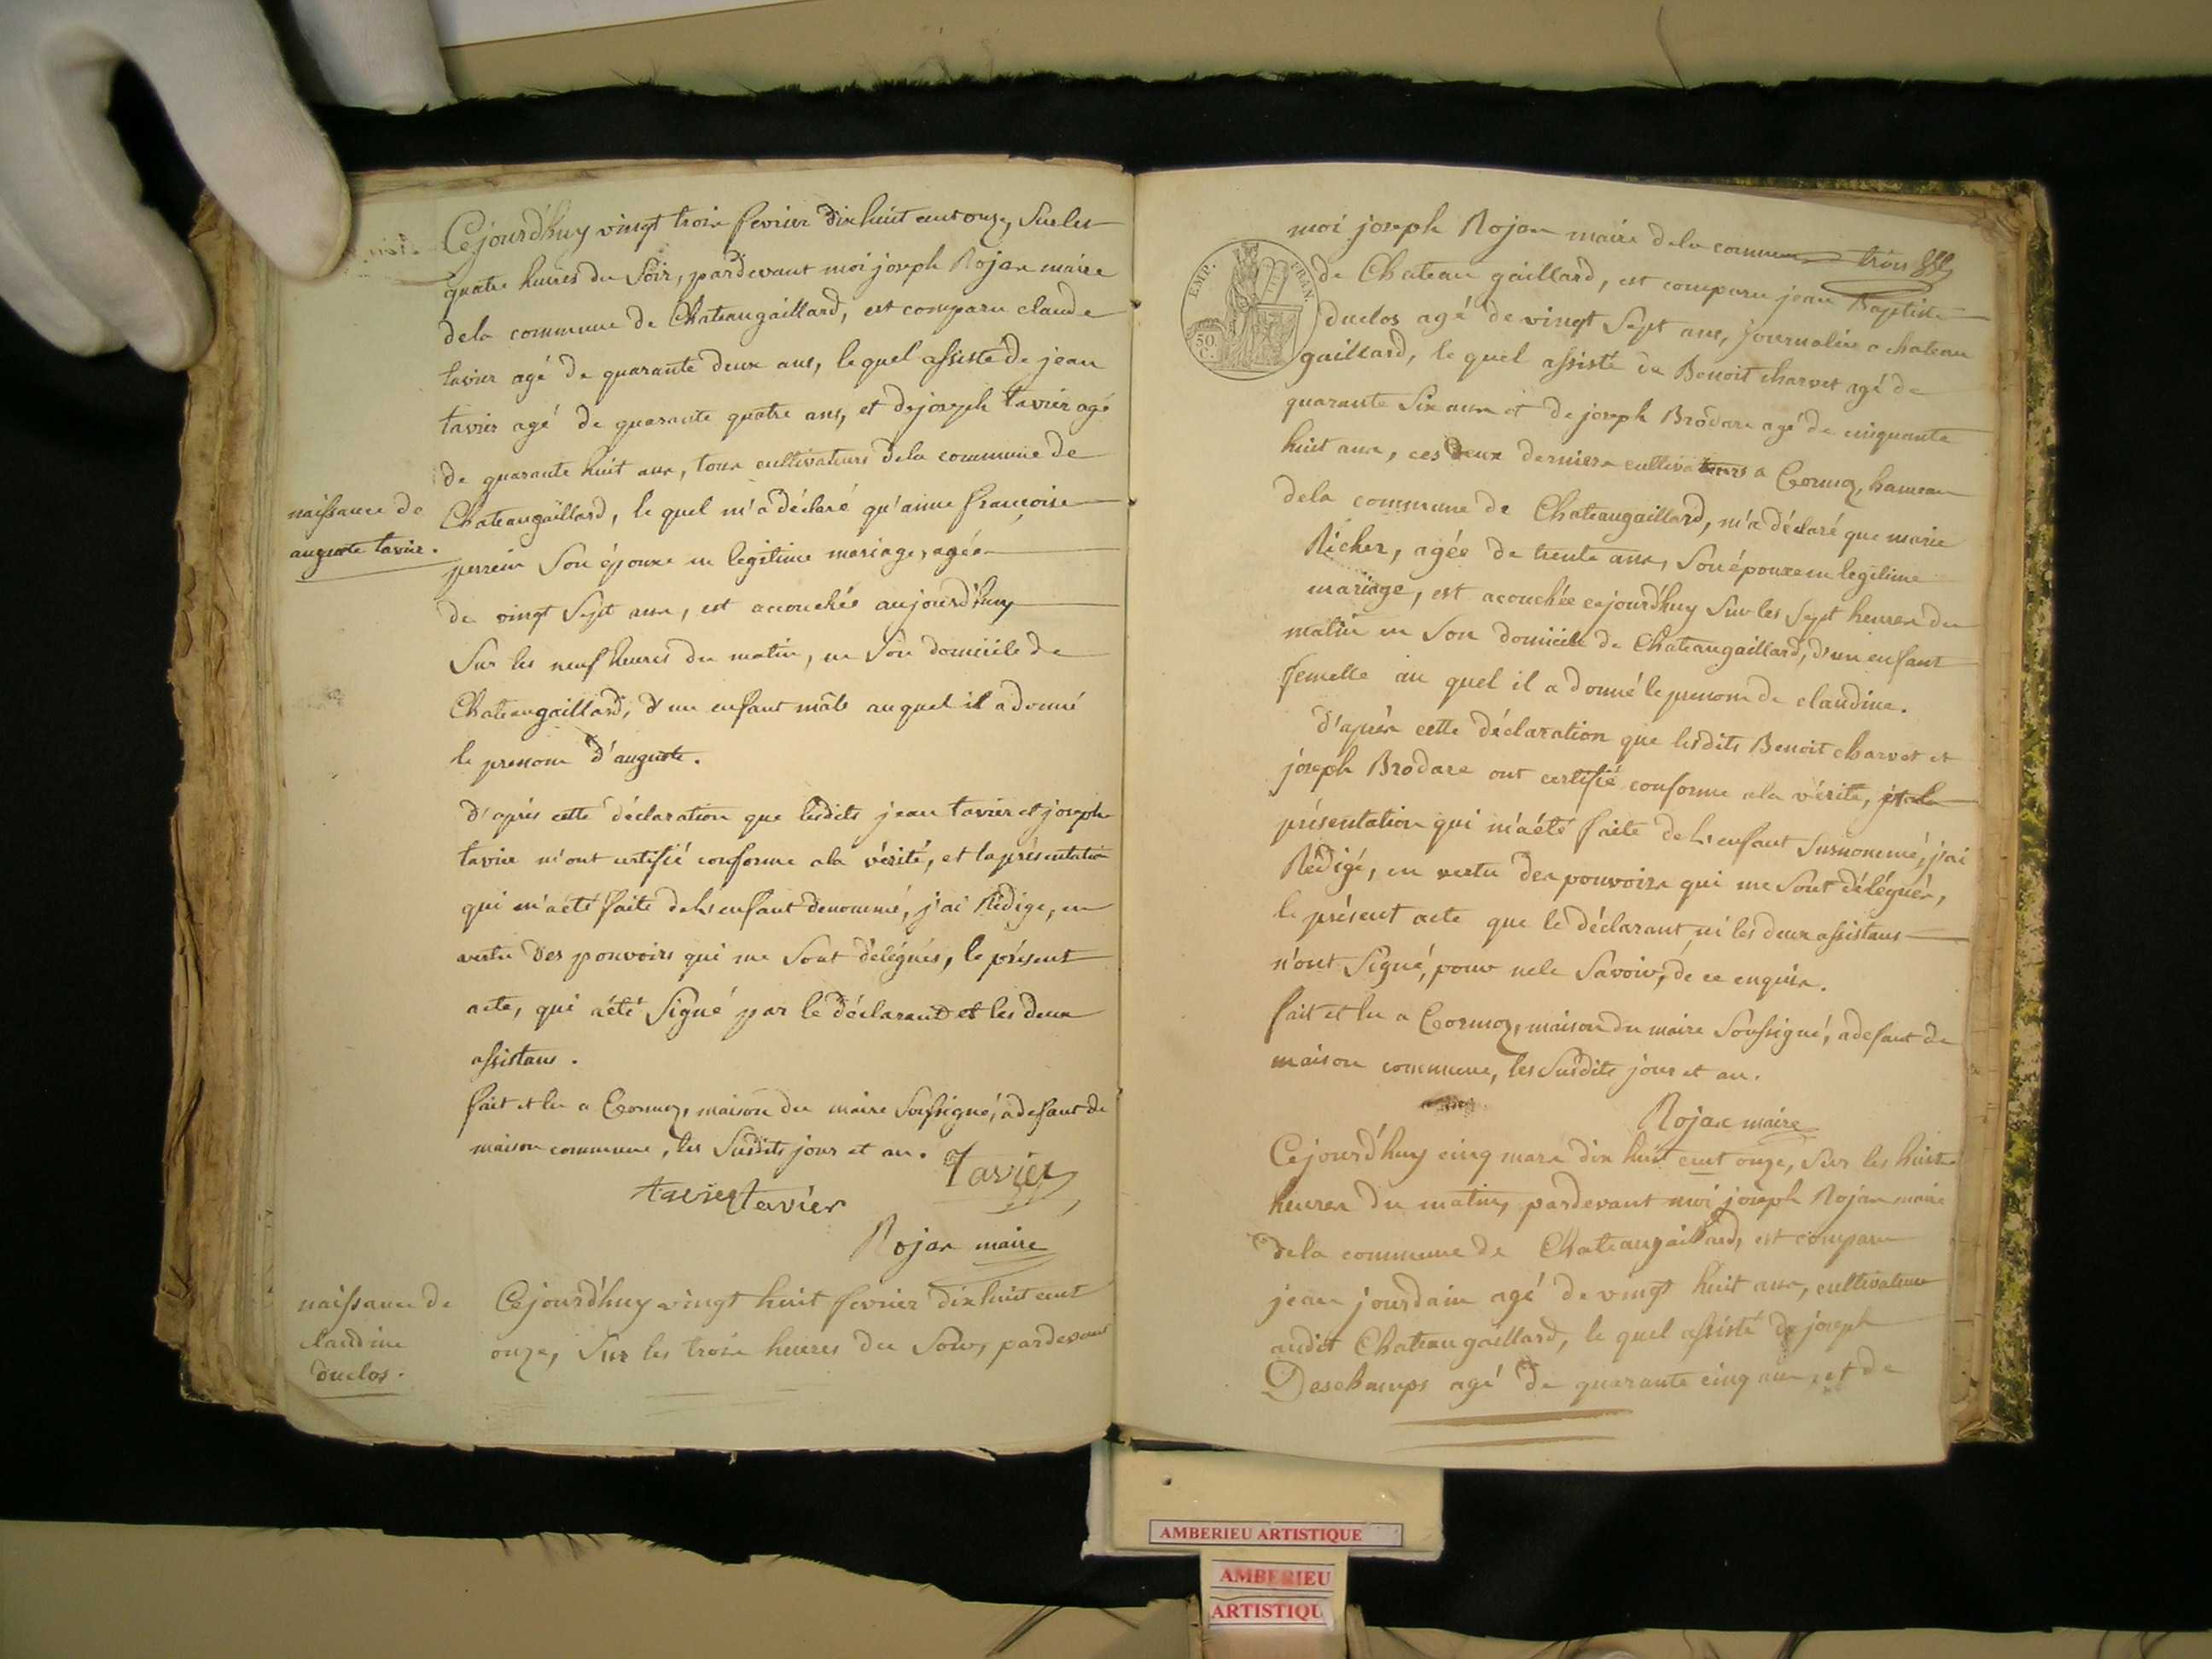 Cejourd'huy vingt trois fevrier dix huit cent onze, Sur les
quatre heures du Soir, pardevant moi joseph Rojan maire
dela commune de Chateaugaillard, est comparu claude
tavier agé de quarante deux ans, lequel assisté de jean
tavier agé de quarante quatre ans, et de joseph tavier agé
de quarante huit ans, tous cultivateurs dela commune de
naissance de
auguste tavier.
Chateaugaillard, le quel m'a déclaré qu'anne francoise
perrein Son épouse en legitime mariage, agée
de vingt Sept ans, est acouchée aujourd'huy
Sur les neuf heures du matin, en Son domicile de
Chateaugaillard, d'un enfant mâle auquel il a donné
le prenom d'auguste.
d'après cette déclaration que lesdits jean tavier et joseph
tavier m'ont certifié conforme ala vérité, et la présentation
qui m'a été faite de l'enfant denommé, j'ai Rédigé, en
vertu des pouvoirs qui me Sont délégués, le présent
acte, qui a été Signé par le déclarant et les deux
assistans.
fait et lu a Cormoz, maison du maire Soussigné, a defaut de
maison commune, les Susdits jour et an.
Tavier
tavier tavier
Rojan maire
naissance de
claudine
duclos.
Cejourd'huy vingt huit fevrier dix huit cent
onze, Sur les trois heures du Soir, pardevant
trois
EMP. FRAN.
50 C.
moi joseph Rojan maire dela commune
de Chateau gaillard, est comparu jean Baptiste
duclos agé de vingt Sept ans, journalier a chateau
gaillard, le quel assisté de Benoit charvet agé de
quarante Six ans et de joseph Brodare agé de cinquante
huit ans, ces deux derniers cultivateurs a Cormoz, hameau
dela commune de Chateaugaillard, m'a déclaré que marie
Richer, agée de trente ans, Son épouse en legitime
mariage, est acouchée cejourd'huy Sur les Sept heures du
matin en Son domicile de Chateaugaillard, d'un enfant
femelle au quel il a donné le prenom de claudine.
d'après cette déclaration que lesdits Benoit charvet et
joseph Brodare ont certifié conforme ala vérité, et la
présentation qui m'a été faite de l'enfant Susnommé, j'ai
Rédigé, en vertu des pouvoirs qui me Sont délégués,
le présent acte que le déclarant ni les deux assistans
n'ont Signé, pour ne le Savoir, de ce enquis.
fait et lu a Cormoz, maison du maire Soussigné, a defaut de
maison commune, les Susdits jour et an.
Rojan maire
Cejourd'huy cinq mars dix huit cent onze, Sur les huit
heures du matin, pardevant moi joseph Rojan maire
dela commune de Chateaugaillard, est comparu
jean jourdain agé de vingt huit ans, cultivateur
audit Chateaugaillard, le quel assisté de joseph
Deschamps agé de quarante cinq ans, et de
AMBERIEU ARTISTIQUE
AMBERIEU
ARTISTIQU